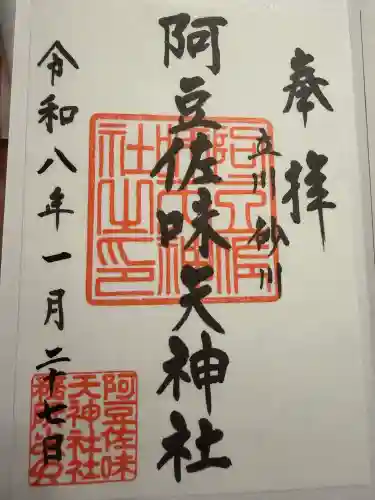 奉拝
立川 砂川
阿豆佐味天神社
令和八年一月二十七日
阿豆佐味
天神社社